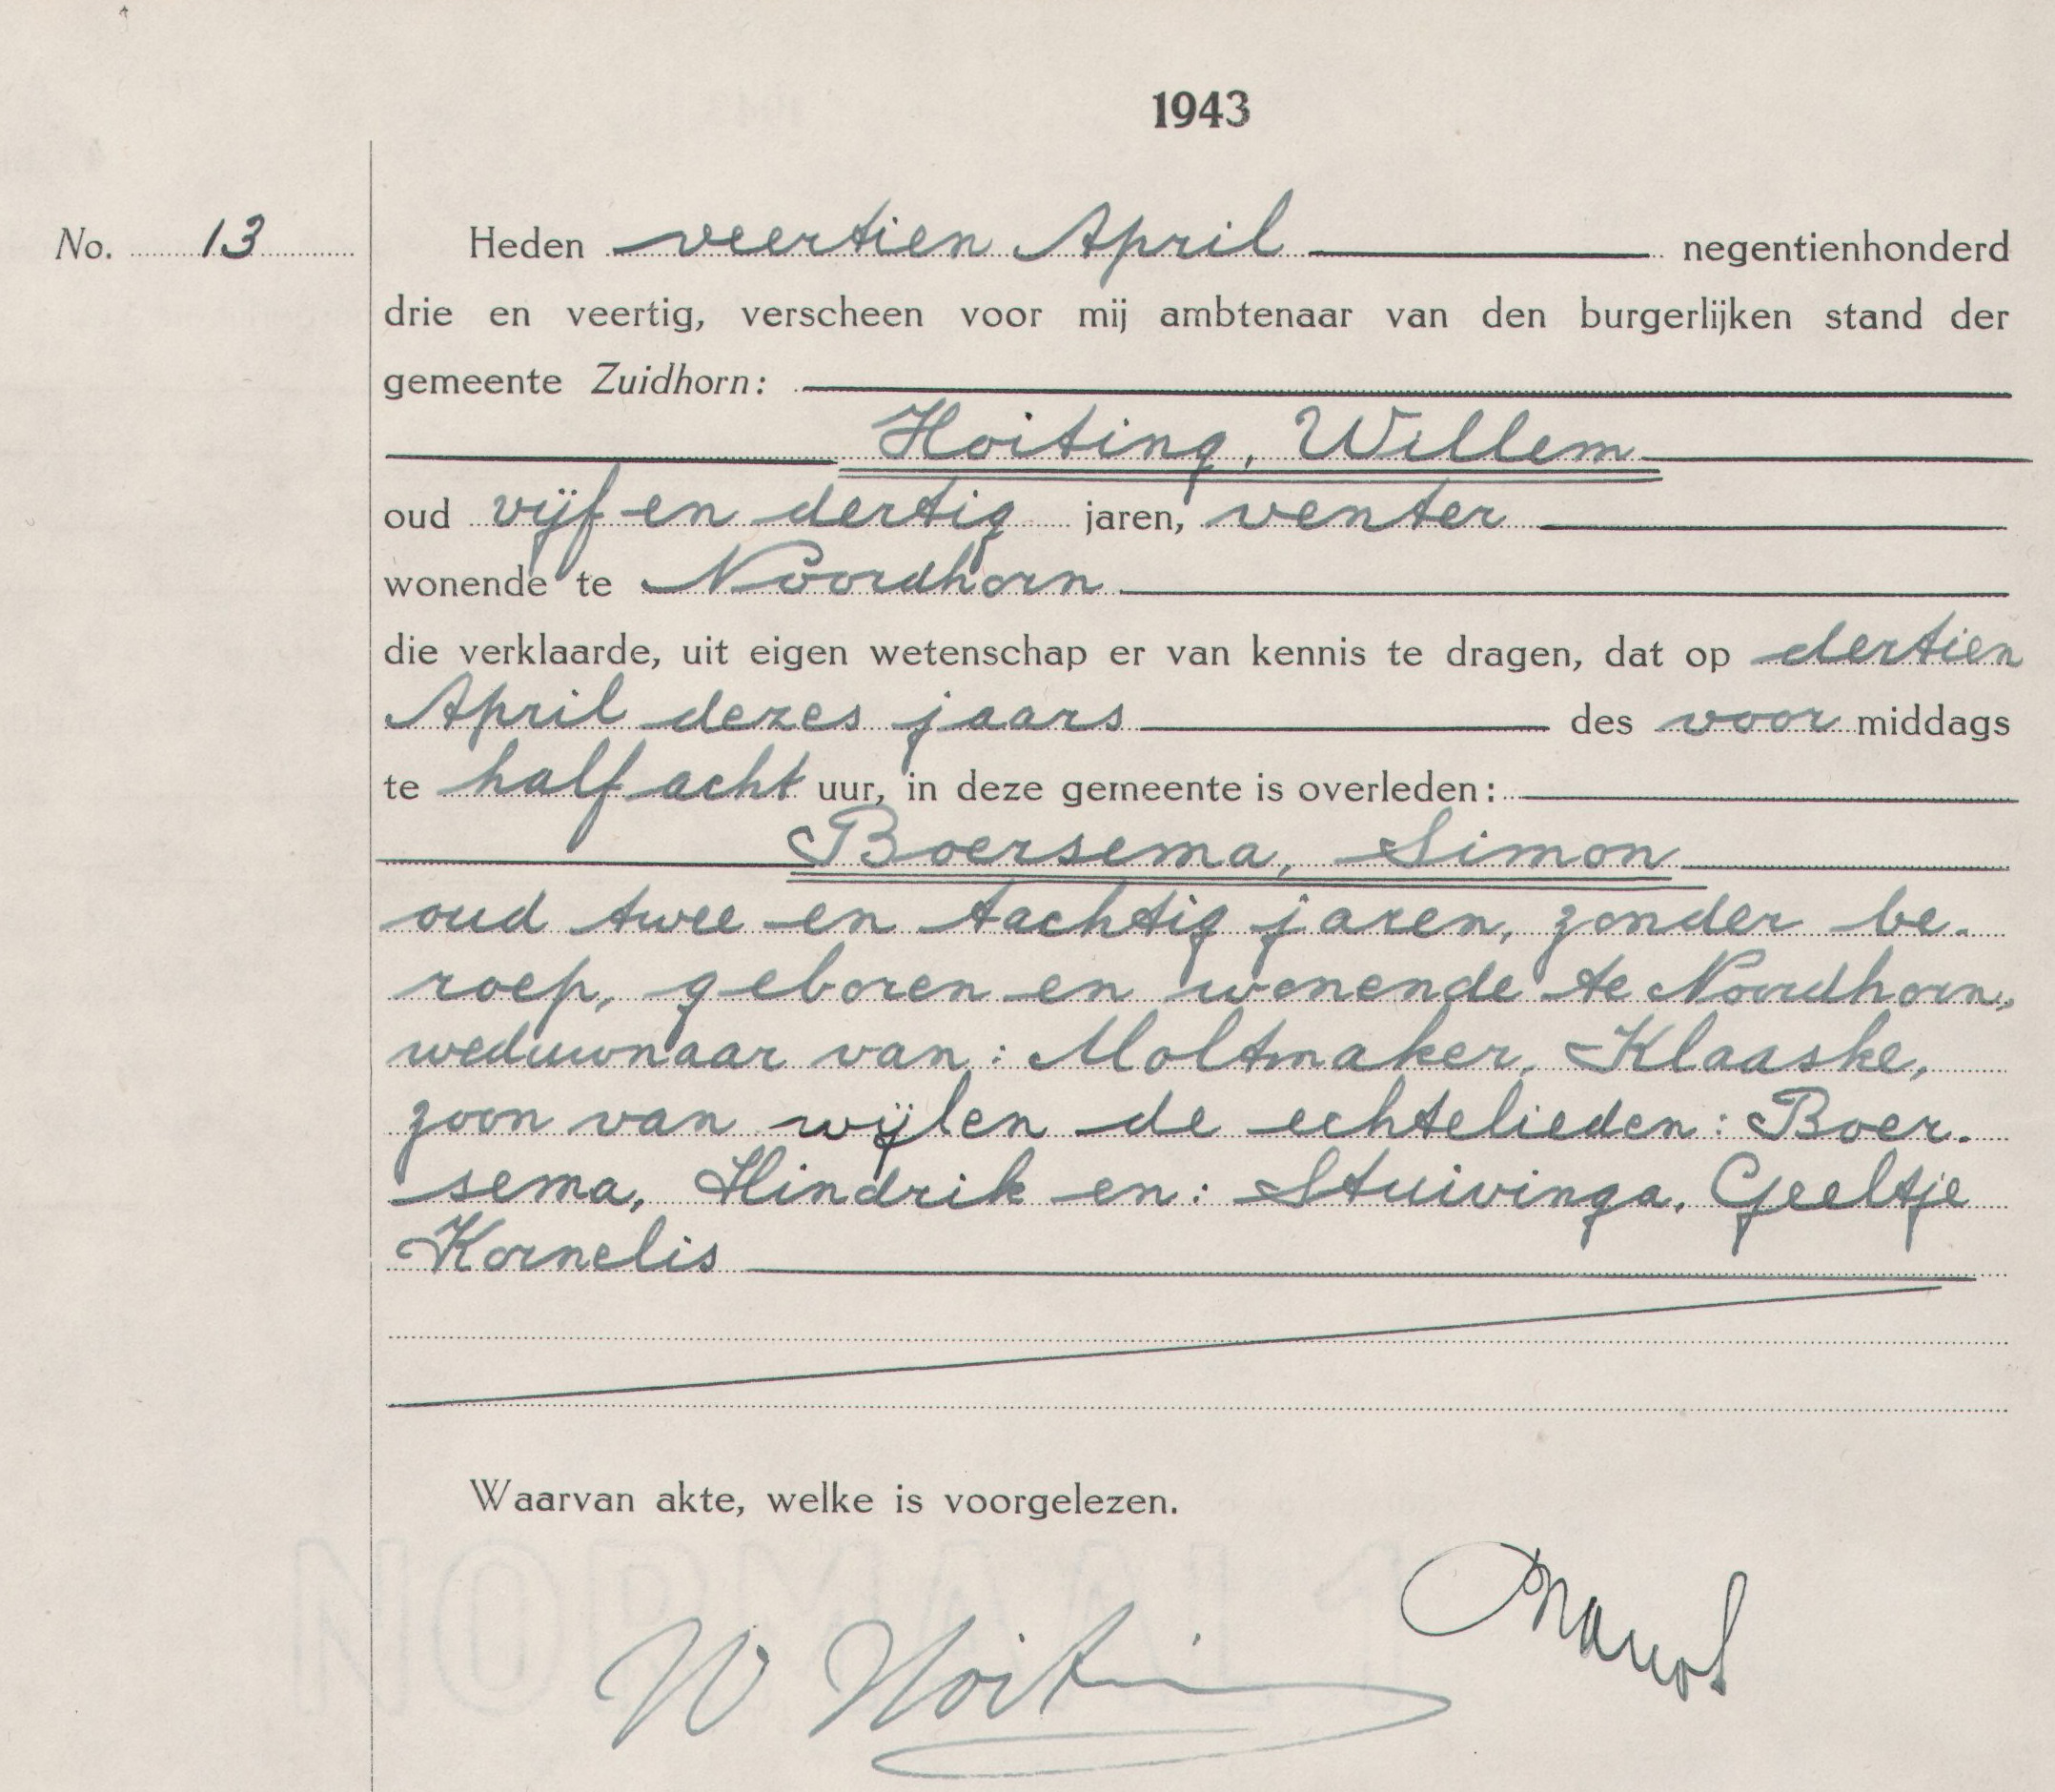 1943
No. 13
Heden veertien April negentienhonderd
drie en veertig, verscheen voor mij ambtenaar van den burgerlijken stand der
gemeente Zuidhorn:
Hoiting, Willem
oud vijf en dertig jaren, venter
wonende te Noordhorn
die verklaarde, uit eigen wetenschap er van kennis te dragen, dat op dertien
April dezes jaars des voor middags
te half acht uur, in deze gemeente is overleden:
Boersema, Simon
oud twee en tachtig jaren, zonder be-
roep, geboren en wonende te Noordhorn,
weduwnaar van: Moltmaker, Klaaske,
zoon van wijlen de echtelieden: Boer-
sema, Hindrik en: Stuivinga, Geeltje
Kornelis
Waarvan akte, welke is voorgelezen.
NORMAAL
W Hoiting